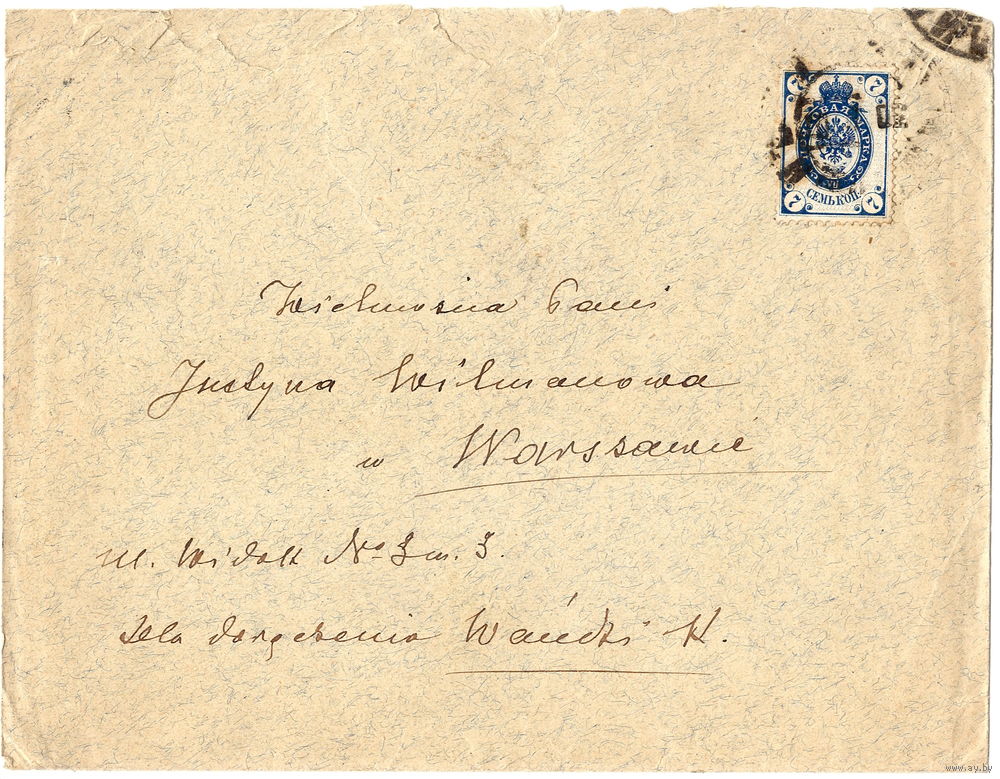 7 7
ПОЧТОВАЯ МАРКА
СЕМЬ КОП.
7 7
Wielmożna Pani
Justyna Wilmanowa
w Warszawie
ul. Widok No 3 m. 3.
dla doręczenia Wańdzi K.
www.ay.by